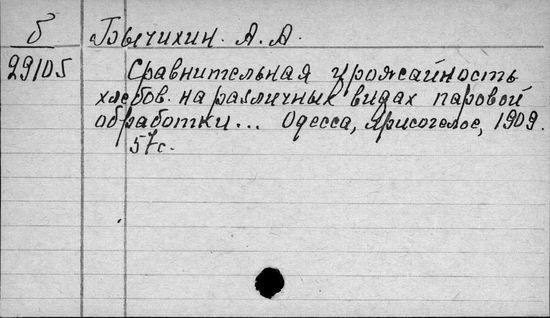 б Бычихин. А. А.
29105 Сравнительная урожайность
хлебов на различных видах паровой
обработки... Одесса, 1909.
57с.